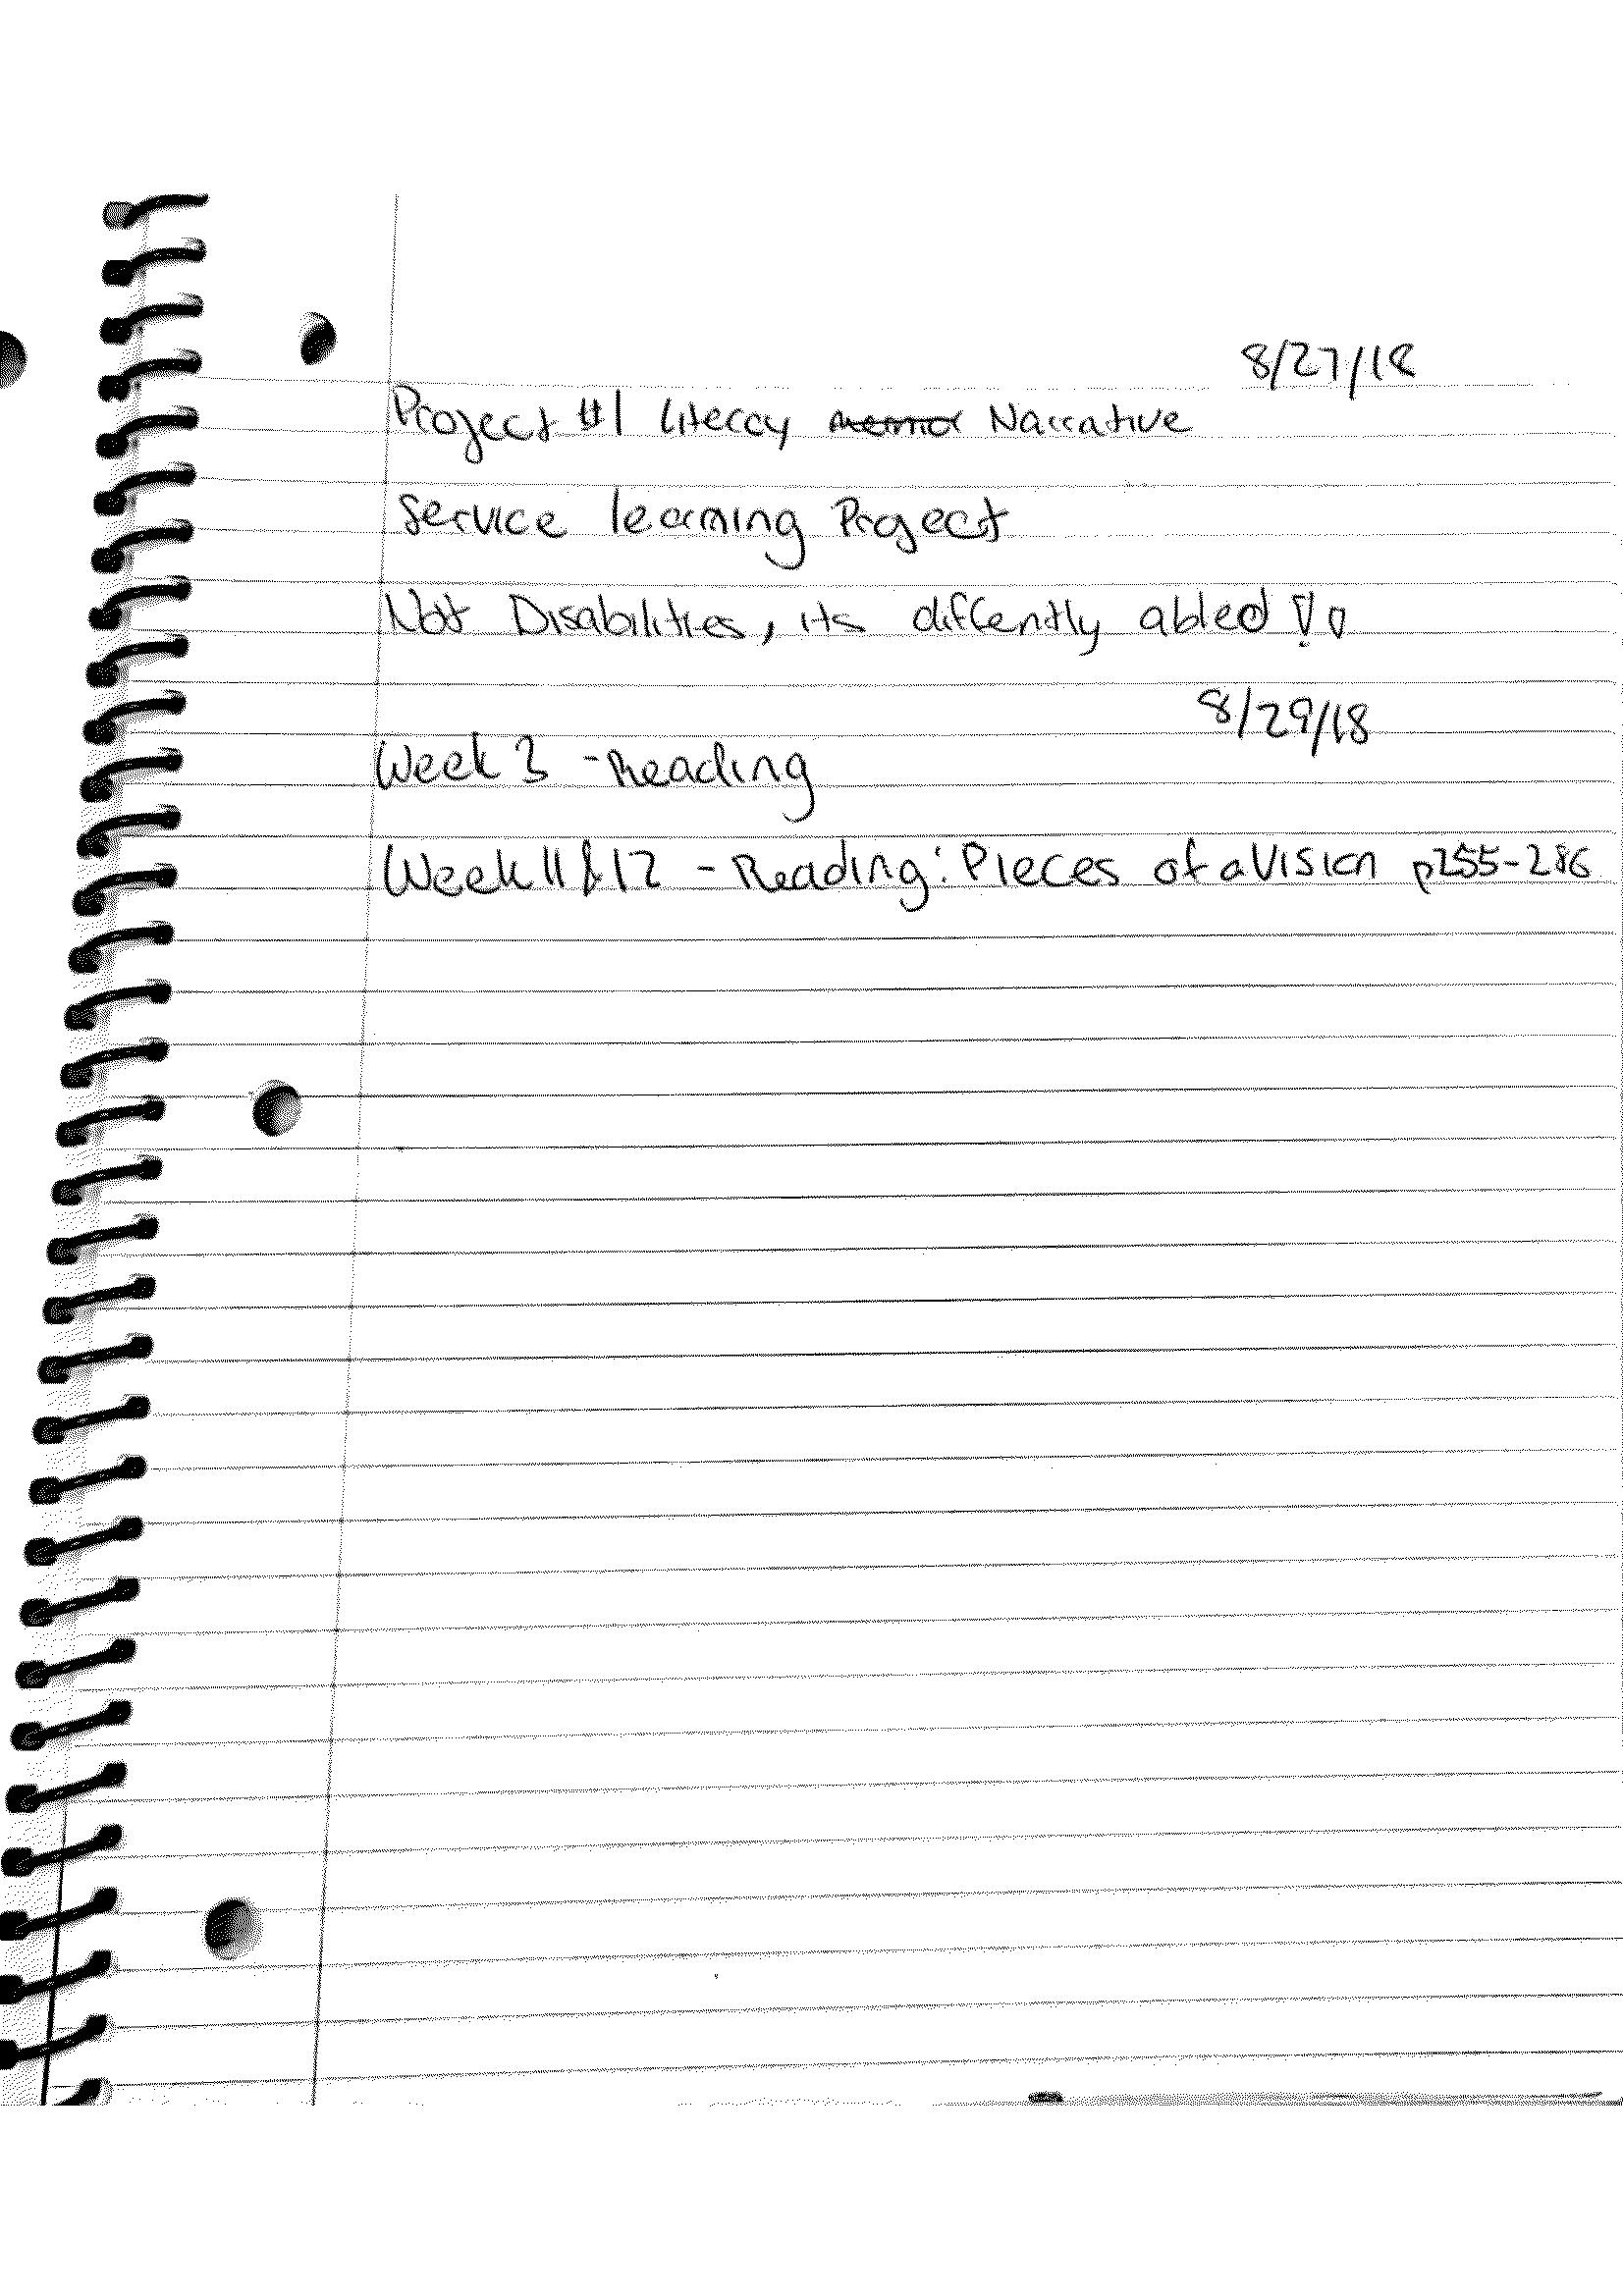 8/27/18
Project #1 Literacy Narrative
Service learning Project
Not Disabilities, its diffently abled !!
8/29/18
Week 3 - Reading
Week 11 & 12 - Reading: Pieces of a Vision p255-286